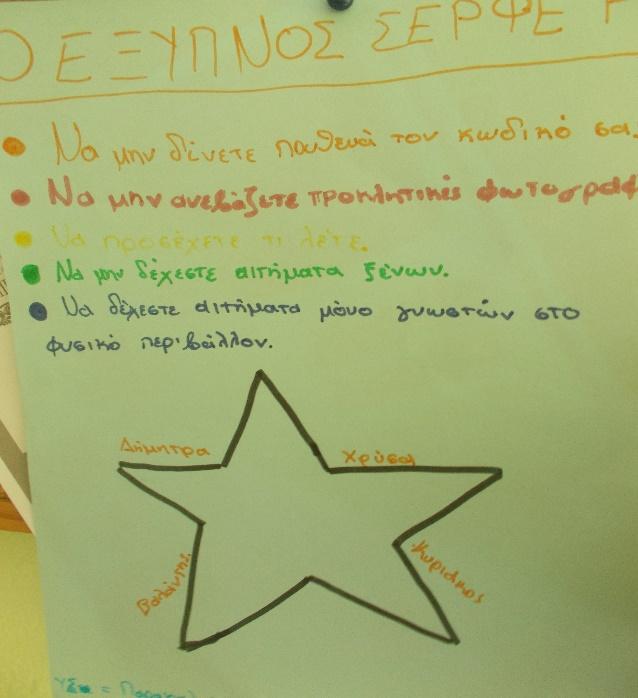 Ο ΕΞΥΠΝΟΣ ΣΕΡΦΕΡ
Να μην δίνετε πουθενά τον κωδικό σα
Να μην ανεβάζετε προκλητικές φωτογραφ
Να προσέχετε τι λέτε.
Να μην δέχεστε αιτήματα ξένων.
Να δέχεστε αιτήματα μόνο γνωστών στο
φυσικό περιβάλλον.
Δήμητρα
Χρύσα
Βαλάντης
Κυριάκος